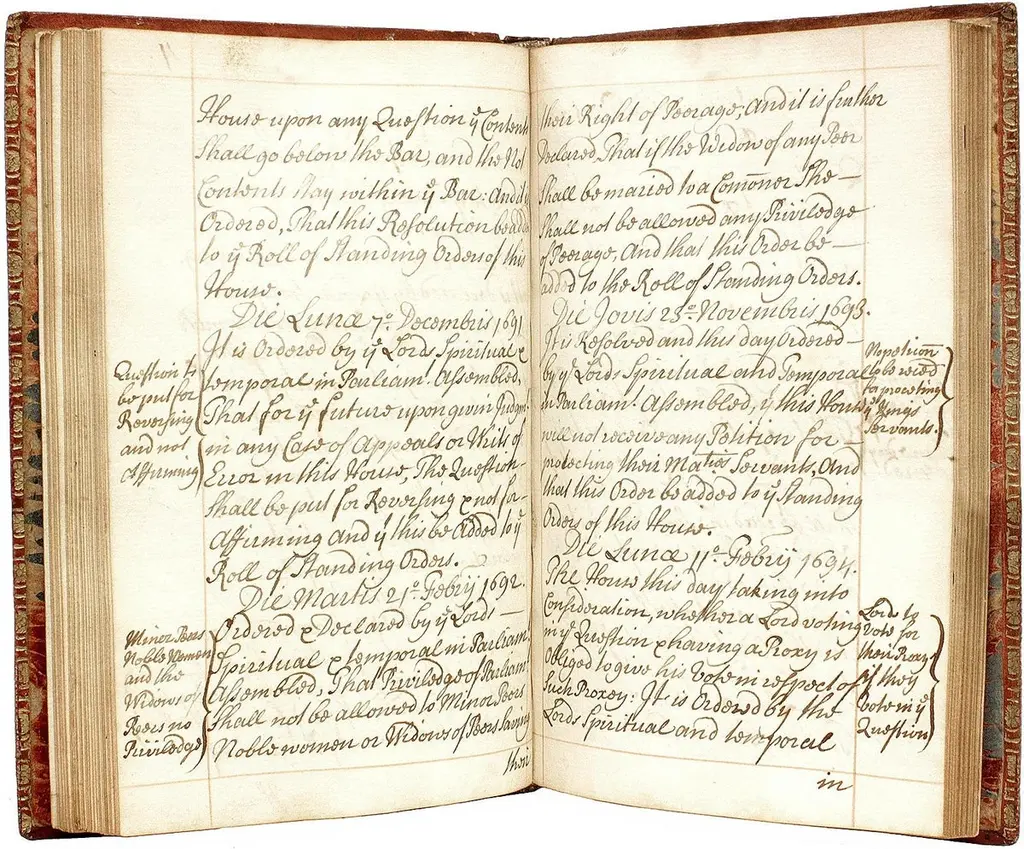 House upon any Question yᵉ Contents
Shall go below the Bar, and the Not
Contents stay within yᵉ Bar: And it is
Ordered, That this Resolution be added
to yᵉ Roll of Standing Orders of this
House.
Die Lunæ 7º Decembris 1691
It is Ordered by yᵉ Lords Spiritual &
temporal in Parliamᵗ. Assembled,
That for yᵉ future upon givin Judgmᵗ
in any Case of Appeals or Writs of
Error in this House, The Question
Shall be put for Reversing & not for
Affirming and yᵗ this be Added to yᵉ
Roll of Standing Orders.
Die Martis 21º Febrij 1692.
Ordered & Declared by yᵉ Lords
Spiritual & temporal in Parliamᵗ
Assembled, That Priviledge of Parliamᵗ
Shall not be allowed to Minor Peers
Noble women or Widows of Peers saving
their
Question to
be put for
Reversing
and not
Affirming
Minor Peers
Noble Women
and the
Widows of
Peers no
Priviledge
their Right of Peerage; And it is further
Declared, That if the Widow of any Peer
Shall be maried to a Com̄oner She
Shall not be allowed any Priviledge
of Peerage, And that this Order be
added to the Roll of Standing Orders.
Die Jovis 23º Novembris 1693.
It is Resolved and this day Ordered
by yᵉ Lords Spiritual and Temporal
in Parliamᵗ. Assembled, yᵗ this House
will not receive any Petition for
protecting their Maᵗⁱᵉˢ Servants, And
that this Order be added to yᵉ Standing
Orders of this House.
Die Lunæ 11º Febrij 1694.
The House this day taking into
Consideration, whether a Lord voting
in yᵉ Question & having a Proxy is
Obliged to give his Vote in respect of
Such Proxey: It is Ordered by the
Lords Spiritual and temporal
in
No petic̄on
to be
for protecting
yᵉ Kings
Servants.
Lord to
Vote for
their Proxy
if they
Vote in yᵉ
Question